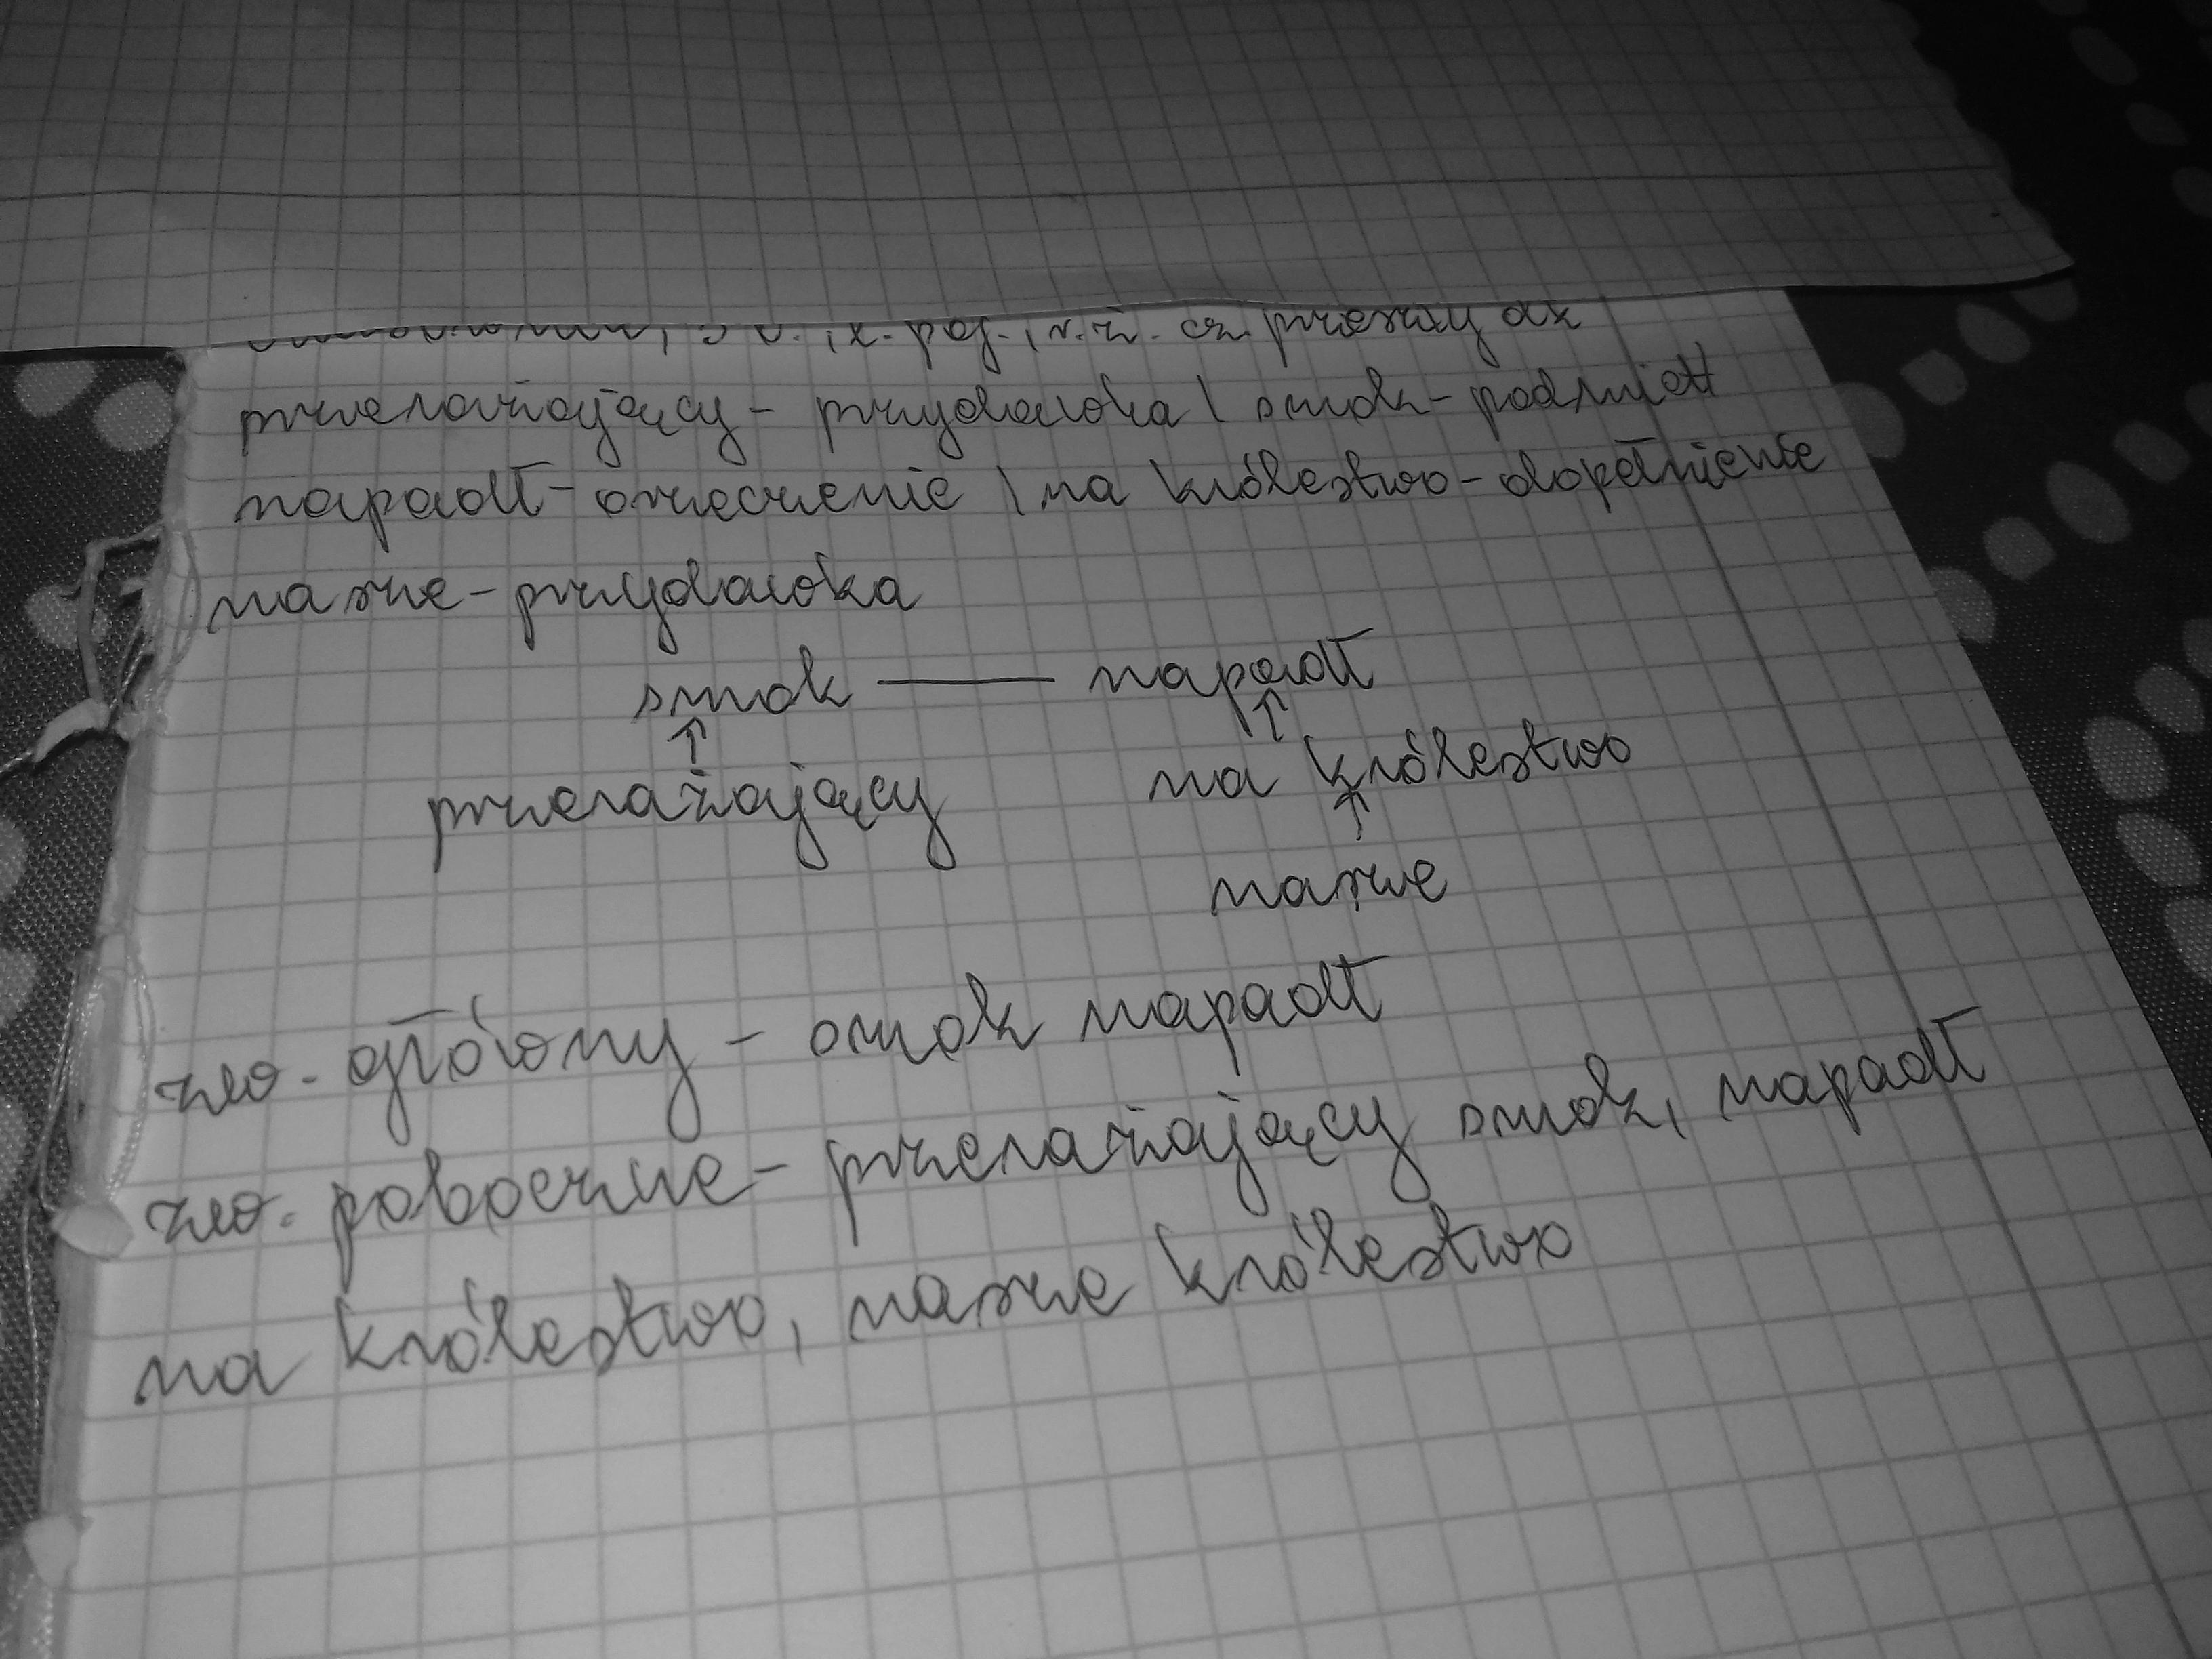 l. poj., r. ż. cz. przeszły
przerażający - przydawka | smok - podmiot
napadł - orzeczenie | na królestwo - dopełnienie
nasze - przydawka
smok — napadł
↑ ↑
przerażający na królestwo
↑
nasze
zw. główny - smok napadł
zw. poboczne - przerażający smok, napadł
na królestwo, nasze królestwo